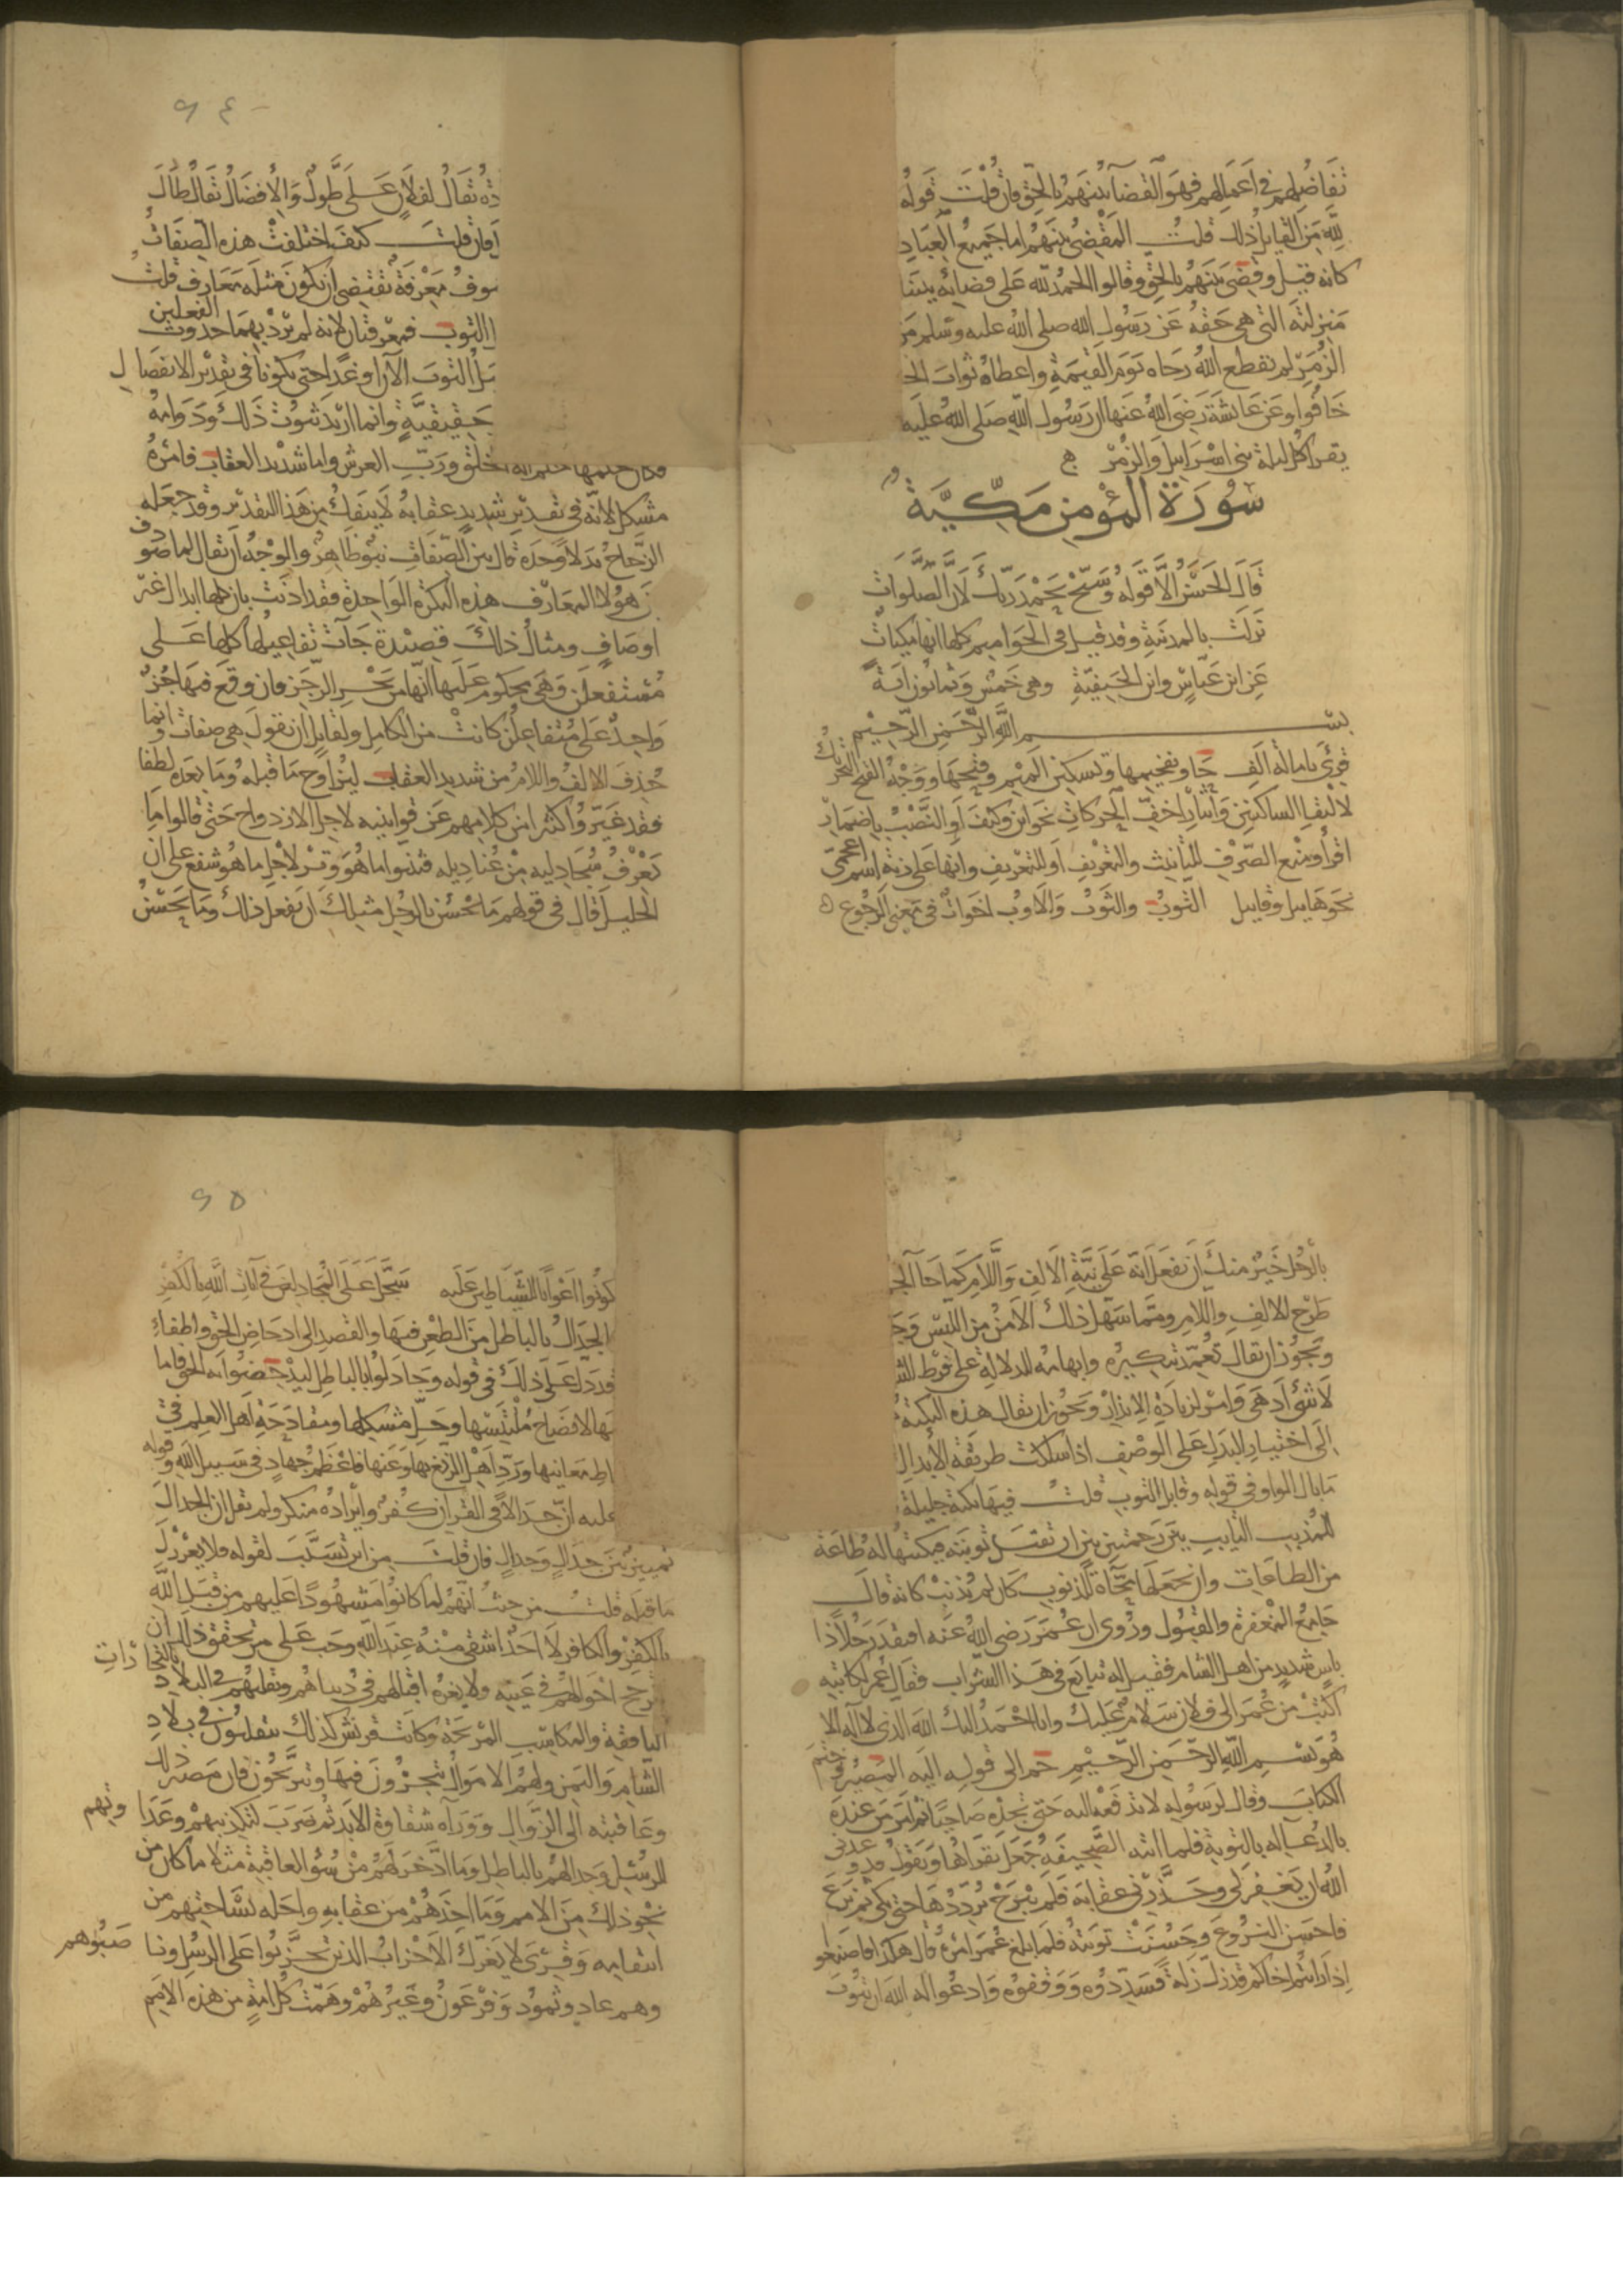 تفاضلهم في اعمالهم فهو القضآ بينهم بالحق فان قلت قوله
لله من القايل ذلك قلت المقضي بينهم اما جميع العباد
كانه قيل وقضى بينهم بالحق وقالوا الحمد لله على قضائه بيننا
منزلته التي هي حقه عن رسول الله صلى الله عليه وسلم من
الزمر لم يقطع الله رجاه يوم القيمة واعطاه ثواب الخا
خافوا وعن عائشة رضي الله عنها ان رسول الله صلى الله عليه
يقرا كل ليلة بني اسرايل والزمر
سورة المؤمن مكية
قال الحسن الا قوله وسبح بحمد ربك لان الصلوات
نزلت بالمدينة وقد قيل في الحواميم كلها انها مكيات
عن ابن عباس وابن الحنيفية وهي خمس وثمانون آية
بسم الله الرحمن الرحيم
قرئ بامالة الف حا وتفخيمها وتسكين الميم وفتحها ووجه الفتح التحريك
لالتقا الساكنين وايثار اخف الحركات نحو اين وكيف او النصب باضمار
اقرأ ومنع الصرف للتأنيث والتعريف او للتعريف وانها على زنة اسم اعجمي
نحو هابيل وقابيل التوب والثوب والاوب اخوات في معنى الرجوع
٩٤
دة يقال لفلان على طول والأفضال يقال طال
فان قلت كيف اختلفت هذه الصفات
موصوف معرفة يقتضي ان يكون مثله معارف قلت
التوب فمعرفتان لانه لم يرد بهما حدوث
الفعلين
بل التوب الآن او غدا حتى يكونا في تقدير الانفصال
حقيقية وانما اريد ثبوت ذلك ودوامه
فكان حكمها حكم اله الخلق ورب العرش واما شديد العقاب فامره
مشكل لانه في تقدير شديد عقابه لا ينفك من هذا التقدير وقد جعله
الزجاج بدلا وحده قال بين الصفات نبو ظاهر والوجه ان يقال لما صودف
بين هؤلا المعارف هذه النكرة الواحدة فقد اذنت بان كلها ابدال غير
اوصاف ومثال ذلك قصيدة جآت تفاعيلها كلها على
مستفعلن وهي محكوم عليها انها من بحر الرجز فان وقع فيها جزؤ
واحد على متفاعلن كانت من الكامل ولقايل ان يقول هي صفات وانما
حذف الالف واللام من شديد العقاب ليزاوج ما قبله وما بعده لفظا
فقد غيروا كثيرا من كلامهم عن قوانينه لاجل الازدواج حتى قالوا ما
يعرف سحادليه من عنادليه فثنوا ما هو وتر لأجل ما هو شفع على ان
الخليل قال في قولهم ما يحسن بالرجل مثلك ان يفعل ذلك وما يحسن
بالرجل خير منك ان يفعل انه على نية الالف واللام كما جا الجـ
طرح الالف واللام ومما سهل ذلك الامن من اللبس وجـ
ويجوز ان يقال تعمد تنكيره وابهامه للدلالة على فرط الشـ
لا شئ ادهى وامر لزيادة الانذار ويجوز ان يقال هذه النكتة
الى اختيار البدل على الوصف اذا سلكت طريقة الأبدال
ما بال الواو في قوله وقابل التوب قلت فيها نكتة جليلة
للمذنب التايب بين رحمتين بين ان تقبل توبته فيكتبها له طاعة
من الطاعات وان يجعلها محاة للذنوب كان لم يذنب كانه قال
جامع المغفرة والقبول وروي ان عمر رضي الله عنه افتقد رجلا ذا
باس شديد من اهل الشام فقيل له تتابع في هذا الشراب فقال عمر لكاتبه
اكتب من عمر الى فلان سلام عليك وانا احمد اليك الله الذي لا اله الا
هو بسم الله الرحمن الرحيم حم الى قوله اليه المصير وختم
الكتاب وقال لرسوله لا تدفعه اليه حتى تجده صاحيا ثم امر من عنده
بالدعآ له بالتوبة فلما اتته الصحيفة جعل يقراها ويقول قد وعدني
الله ان يغفر لي وحذرني عقابه فلم يبرح يرددها حتى بكى ثم نزع
فاحسن النزوع وحسنت توبته فلما بلغ عمر امره قال هكذا فاصنعوا
اذا رايتم اخاكم قد زل زلة فسددوه ووقفوه وادعوا له الله ان يتوب
٩٥
كونوا اعوانا للشياطين عليه سجل على المجادلين في آيات الله بالكفر
الجدال بالباطل من الطعن فيها والقصد الى ادحاض الحق واطفاء
قد دل على ذلك في قوله وجادلوا بالباطل ليدحضوا به الحق فاما
فيها لايضاح ملتبسها وحل مشكلها ومقادحة اهل العلم في
استنباط معانيها ورد اهل الزيغ بها وعنها فاعظم جهاد في سبيل الله وقوله
عليه ان جدالا في القرآن كفر وايراده منكر ولم يقل ان الجدال
تمييز بين جدال وجدال فان قلت من اين تسبب لقوله فلا يغررك
ما قبله قلت من حيث انهم لما كانوا مشهودا عليهم من قبل الله
بالكفر والكافر لا احد اشقى منه عند الله وجب على من تحقق ذلك ان
ترجح احوالهم في عينه ولا يغره اقبالهم في دنياهم وتقلبهم في البلاد بالتجارات
النافقة والمكاسب المربحة وكانت قريش كذلك يتقلبون في بلاد
الشام واليمن ولهم الاموال يتجرون فيها ويتربحون فان مصير ذلك
وعاقبته الى الزوال ووراه شقاوة الابد ثم ضرب لتكذيبهم وعداوتهم
للرسل وجدالهم بالباطل وما ادخر لهم من سؤ العاقبة مثلا ما كان من
نحو ذلك من الامم وما اخذهم من عقابه واحله بساحتهم من
انتقامه وقرئ لا يغرك الاحزاب الذين تحزبوا على الرسل وناصبوهم
وهم عاد وثمود وفرعون وغيرهم وهمت كل امة من هذه الامم